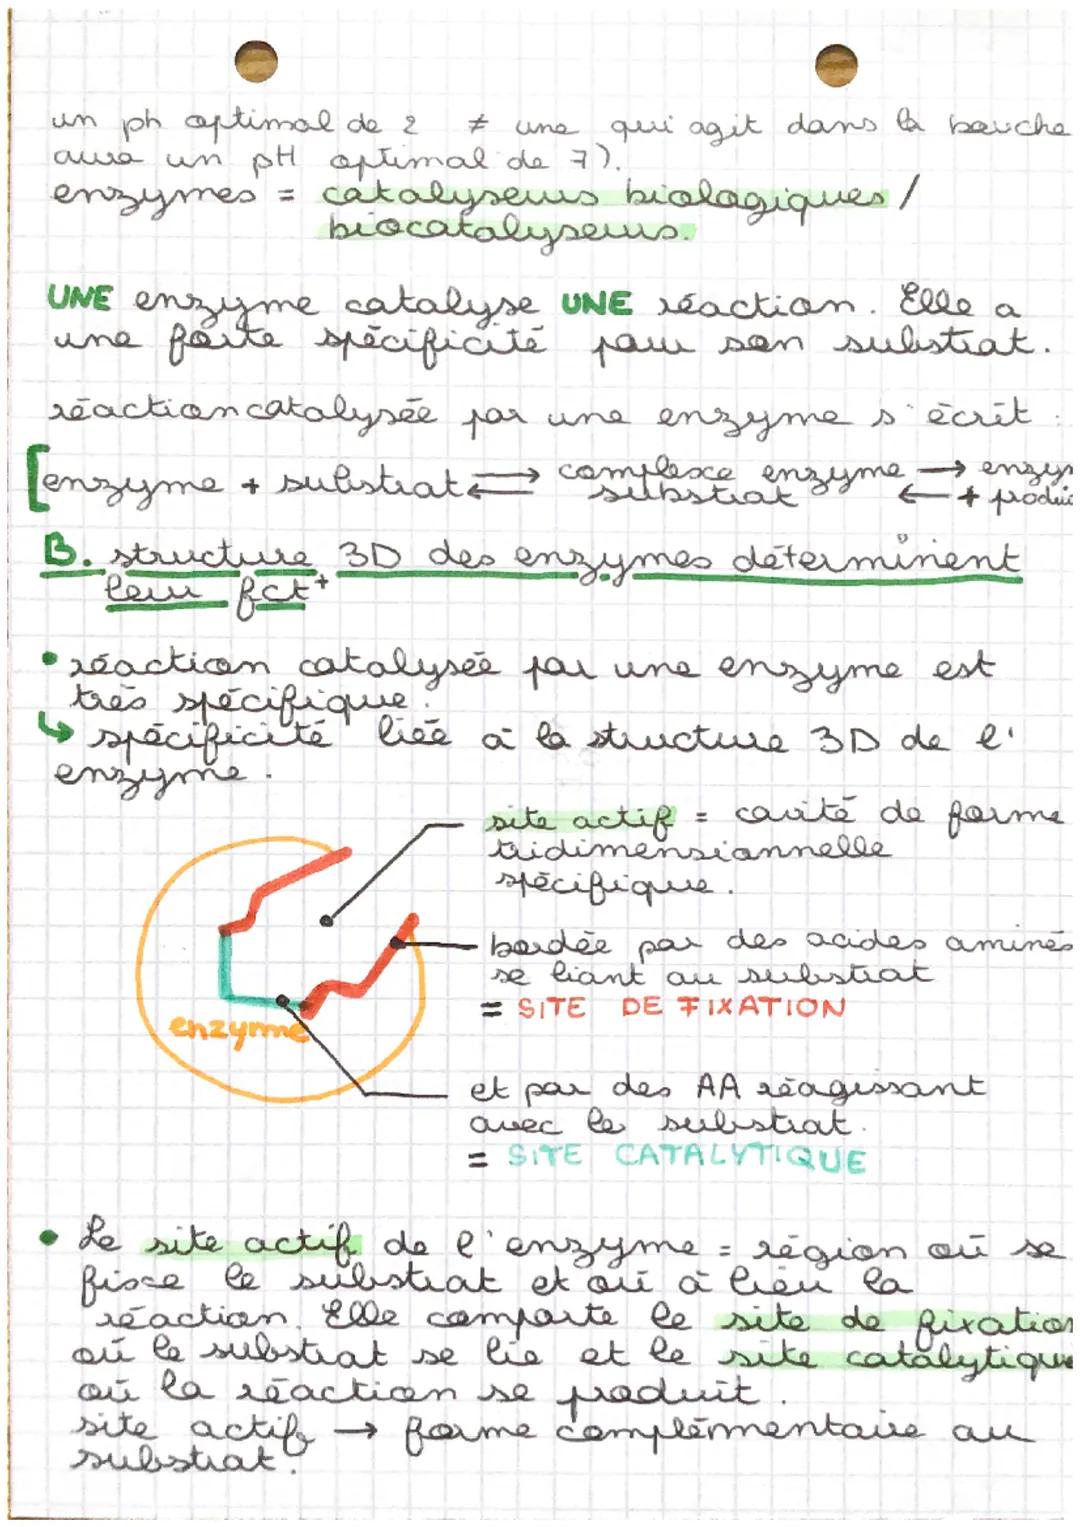 un ph optimal de 2 ≠ une qui agit dans la bouche
aura un pH optimal de 7).
enzymes = catalyseurs biologiques /
biocatalyseurs.
UNE enzyme catalyse UNE réaction. Elle a
une forte spécificité pour son substrat.
réaction catalysée par une enzyme s'écrit :
[enzyme + substrat ⇄ complexe enzyme substrat ⇄ enzym + produi
B. structure 3D des enzymes déterminent
leur fct°
• réaction catalysée par une enzyme est
très spécifique.
↳ spécificité liée à la structure 3D de l'
enzyme.
site actif = cavité de forme
tridimensionnelle
spécifique.
bordée par des acides aminés
se liant au substrat
= SITE DE FIXATION
enzyme
et par des AA réagissant
avec le substrat.
= SITE CATALYTIQUE
• Le site actif de l'enzyme = région où se
fixe le substrat et où à lieu la
réaction. Elle comporte le site de fixation
où le substrat se lie et le site catalytique
où la réaction se produit.
site actif → forme complémentaire au
substrat.